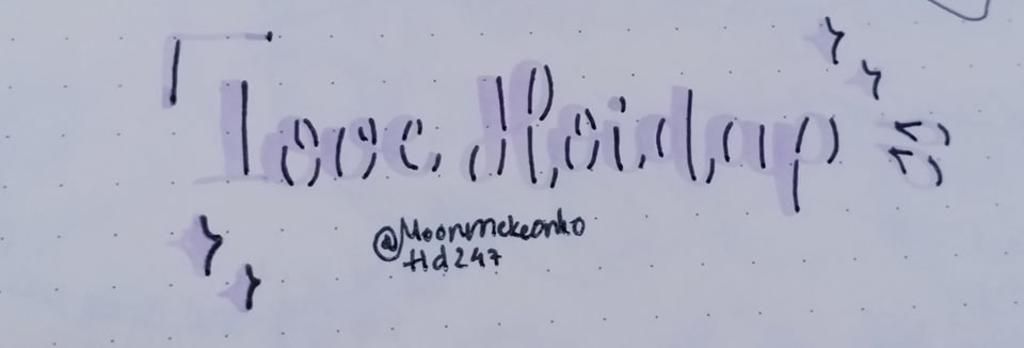 Love Hoidap
@Moonmckeonko
Hd247